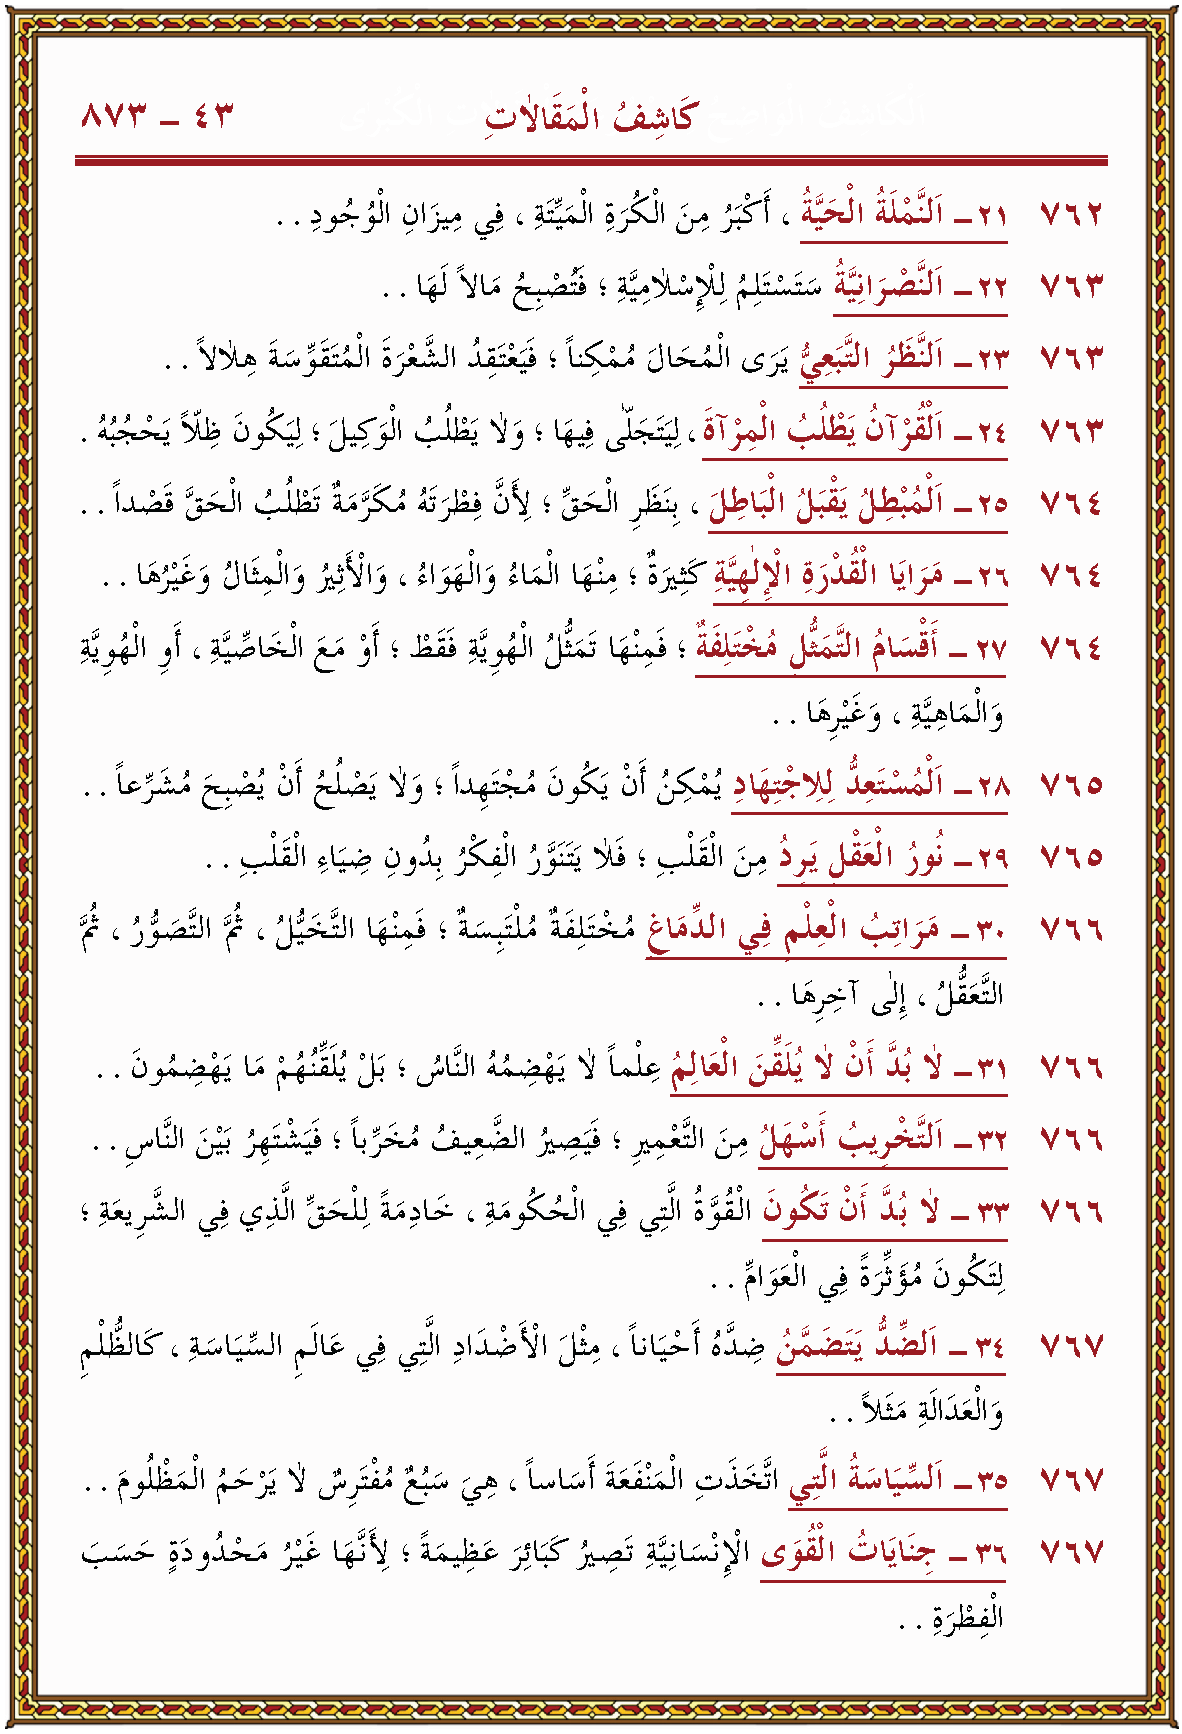 كَاشِفُ الْمَقَالاٰتِ ٤٣ ــ ٨٧٣
٧٦٢ ٢١ ــ اَلنَّمْلَةُ الْحَيَّةُ ، أَكْبَرُ مِنَ الْكُرَةِ الْمَيِّتَةِ ، فِي مِيزَانِ الْوُجُودِ . .
٧٦٣ ٢٢ ــ اَلنَّصْرَانِيَّةُ سَتَسْتَلِمُ لِلْإِسْلاٰمِيَّةِ ؛ فَتُصْبِحُ مَالاً لَهَا . .
٧٦٣ ٢٣ ــ اَلنَّظَرُ التَّبَعِيُّ يَرَى الْمُحَالَ مُمْكِناً ؛ فَيَعْتَقِدُ الشَّعْرَةَ الْمُتَقَوِّسَةَ هِلاٰلاً . .
٧٦٣ ٢٤ ــ اَلْقُرْآنُ يَطْلُبُ الْمِرْآةَ ، لِيَتَجَلّٰى فِيهَا ؛ وَلاٰ يَطْلُبُ الْوَكِيلَ ؛ لِيَكُونَ ظِلّاً يَحْجُبُهُ .
٧٦٤ ٢٥ ــ اَلْمُبْطِلُ يَقْبَلُ الْبَاطِلَ ، بِنَظَرِ الْحَقِّ ؛ لِأَنَّ فِطْرَتَهُ مُكَرَّمَةٌ تَطْلُبُ الْحَقَّ قَصْداً . .
٧٦٤ ٢٦ ــ مَرَايَا الْقُدْرَةِ الْإِلٰهِيَّةِ كَثِيرَةٌ ؛ مِنْهَا الْمَاءُ وَالْهَوَاءُ ، وَالْأَثِيرُ وَالْمِثَالُ وَغَيْرُهَا . .
٧٦٤ ٢٧ ــ أَقْسَامُ التَّمَثُّلِ مُخْتَلِفَةٌ ؛ فَمِنْهَا تَمَثُّلُ الْهُوِيَّةِ فَقَطْ ؛ أَوْ مَعَ الْخَاصِّيَّةِ ، أَوِ الْهُوِيَّةِ
وَالْمَاهِيَّةِ ، وَغَيْرِهَا . .
٧٦٥ ٢٨ ــ اَلْمُسْتَعِدُّ لِلِاجْتِهَادِ يُمْكِنُ أَنْ يَكُونَ مُجْتَهِداً ؛ وَلاٰ يَصْلُحُ أَنْ يُصْبِحَ مُشَرِّعاً . .
٧٦٥ ٢٩ ــ نُورُ الْعَقْلِ يَرِدُ مِنَ الْقَلْبِ ؛ فَلاٰ يَتَنَوَّرُ الْفِكْرُ بِدُونِ ضِيَاءِ الْقَلْبِ . .
٧٦٦ ٣٠ ــ مَرَاتِبُ الْعِلْمِ فِي الدِّمَاغِ مُخْتَلِفَةٌ مُلْتَبِسَةٌ ؛ فَمِنْهَا التَّخَيُّلُ ، ثُمَّ التَّصَوُّرُ ، ثُمَّ
التَّعَقُّلُ ، إِلٰى آخِرِهَا . .
٧٦٦ ٣١ ــ لاٰ بُدَّ أَنْ لاٰ يُلَقِّنَ الْعَالِمُ عِلْماً لاٰ يَهْضِمُهُ النَّاسُ ؛ بَلْ يُلَقِّنُهُمْ مَا يَهْضِمُونَ . .
٧٦٦ ٣٢ ــ اَلتَّخْرِيبُ أَسْهَلُ مِنَ التَّعْمِيرِ ؛ فَيَصِيرُ الضَّعِيفُ مُخَرِّباً ؛ فَيَشْتَهِرُ بَيْنَ النَّاسِ . .
٧٦٦ ٣٣ ــ لاٰ بُدَّ أَنْ تَكُونَ الْقُوَّةُ الَّتِي فِي الْحُكُومَةِ ، خَادِمَةً لِلْحَقِّ الَّذِي فِي الشَّرِيعَةِ ؛
لِتَكُونَ مُؤَثِّرَةً فِي الْعَوَامِّ . .
٧٦٧ ٣٤ ــ اَلضِّدُّ يَتَضَمَّنُ ضِدَّهُ أَحْيَاناً ، مِثْلَ الْأَضْدَادِ الَّتِي فِي عَالَمِ السِّيَاسَةِ ، كَالظُّلْمِ
وَالْعَدَالَةِ مَثَلاً . .
٧٦٧ ٣٥ ــ اَلسِّيَاسَةُ الَّتِي اتَّخَذَتِ الْمَنْفَعَةَ أَسَاساً ، هِيَ سَبُعٌ مُفْتَرِسٌ لاٰ يَرْحَمُ الْمَظْلُومَ . .
٧٦٧ ٣٦ ــ جِنَايَاتُ الْقُوَى الْإِنْسَانِيَّةِ تَصِيرُ كَبَائِرَ عَظِيمَةً ؛ لِأَنَّهَا غَيْرُ مَحْدُودَةٍ حَسَبَ
الْفِطْرَةِ . .